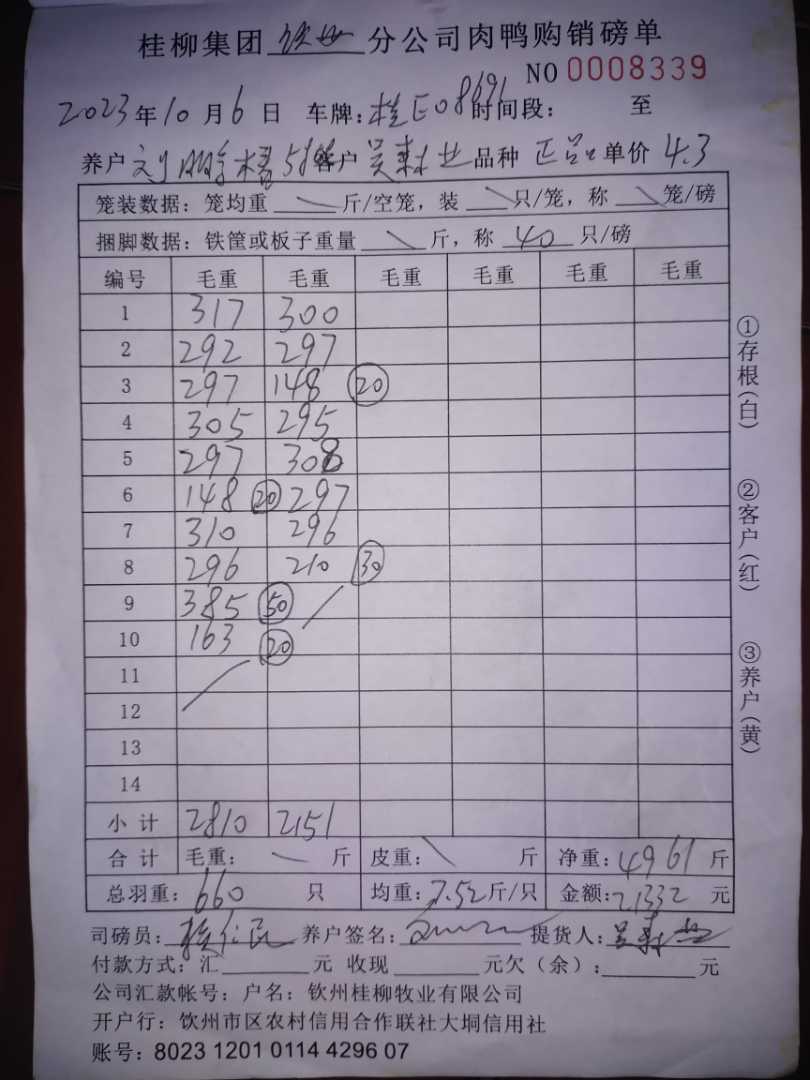 桂柳集团 钦州 分公司肉鸭购销磅单
NO 0008339
2023年10月6日 车牌:桂E08691 时间段: 至
养户 客户 品种 正品 单价 4.3
笼装数据:笼均重 斤/空笼,装 只/笼,称 笼/磅
捆脚数据:铁筐或板子重量 斤,称 40 只/磅
编号 毛重 毛重 毛重 毛重 毛重 毛重
1 317 300
2 292 297
3 297 148 20
4 305 295
5 297 308
6 148 20 297
7 310 296
8 296 210 30
9 385 50
10 163 20
11
12
13
14
小计 2810 2151
合计 毛重: 斤 皮重: 斤 净重:4961 斤
总羽重:660 只 均重:7.52斤/只 金额:21332 元
司磅员: 养户签名: 提货人:
付款方式:汇 元 收现 元欠(余): 元
公司汇款帐号:户名:钦州桂柳牧业有限公司
开户行:钦州市区农村信用合作联社大垌信用社
账号:8023 1201 0114 4296 07
①存根(白)
②客户(红)
③养户(黄)